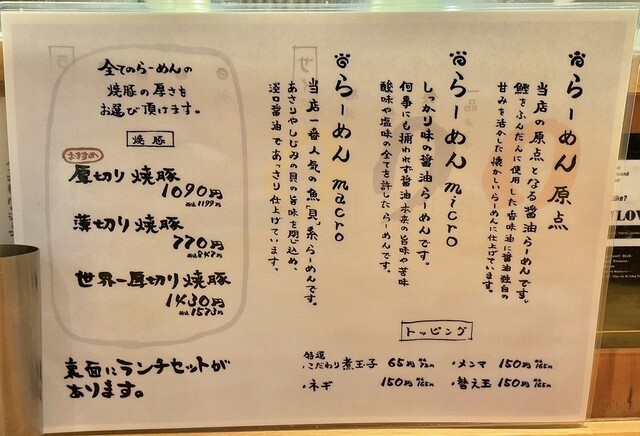 らーめん 原点
当店の原点となる醤油らーめんです。
鰹をふんだんに使用した香味油に醤油独自の
甘みを活かした懐かしいらーめんに仕上げています。
らーめん micro
しっかり味の醤油らーめんです。
何事にも捕われず醤油本来の旨味や苦味
酸味や塩味の全てを許したらーめんです。
らーめん macro
当店一番人気の魚「貝」系らーめんです。
あさりやしじみの貝の旨味を閉じ込め、
淡口醤油であっさり仕上げています。
全てのらーめんの
焼豚の厚さを
お選び頂けます。
焼豚
おすすめ
厚切り焼豚
1090円
税込1199円
薄切り焼豚
770円
税込847円
世界一厚切り焼豚
1430円
税込1573円
裏面にランチセットが
あります。
トッピング
特選
・こだわり煮玉子 65円
・ネギ 150円 税込165円
・メンマ 150円 税込165円
・替え玉 150円 税込165円